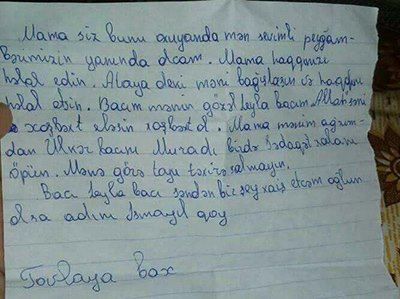 Mama siz bunu oxuyanda mən sevimli peyğəm-
bərimizin yanında olcam. Mama haqqınızı
halal edin. Alaya deki məni bağışlasın və haqqını
halal etsin. Bacım mənim gözəl Leyla bacım Allah səni
xoşbəxt eləsin xoşbəxt ol. Mama mənim ağzım-
dan Ülkər bacını Muradı birdə Sədaqət xalanı
öpün. Mənə görə toyu təxirə salmayın.
Bacı Leyla bacı səndən bir şey xaiş etcəm oğlun
olsa adını İsmayıl qoy
Tovlaya bax